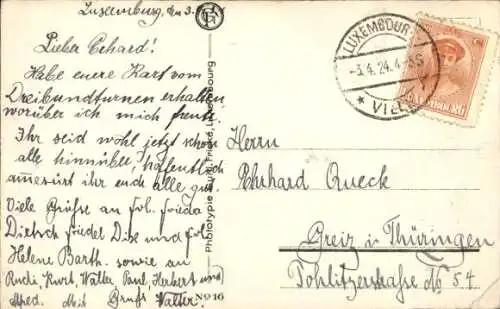 Luxemburg, den 3.
Lieber Erhard!
Habe euere Kart vom
Dreibundturnen erhalten
worüber ich mich freute.
Ihr seid wohl jetzt schon
alle hinnüble, hoffentlich
amüsiert ihr euch alle gut.
Viele Grüße an Frl. Frieda
Dietsch Friedel Dixe und Frl.
Helene Barth. sowie an
Rudi, Kurt, Walter, Paul, Herbert und
Mit Gruß Walter.
Phototypie Aug. Frieden, Luxembourg
Nº 16
LUXEMBOURG
-3.4.24. 4-5S
* VILLE
Herrn
Ehrhard Queck
Greiz i. Thüringen
Pohlitzerstraße No 54